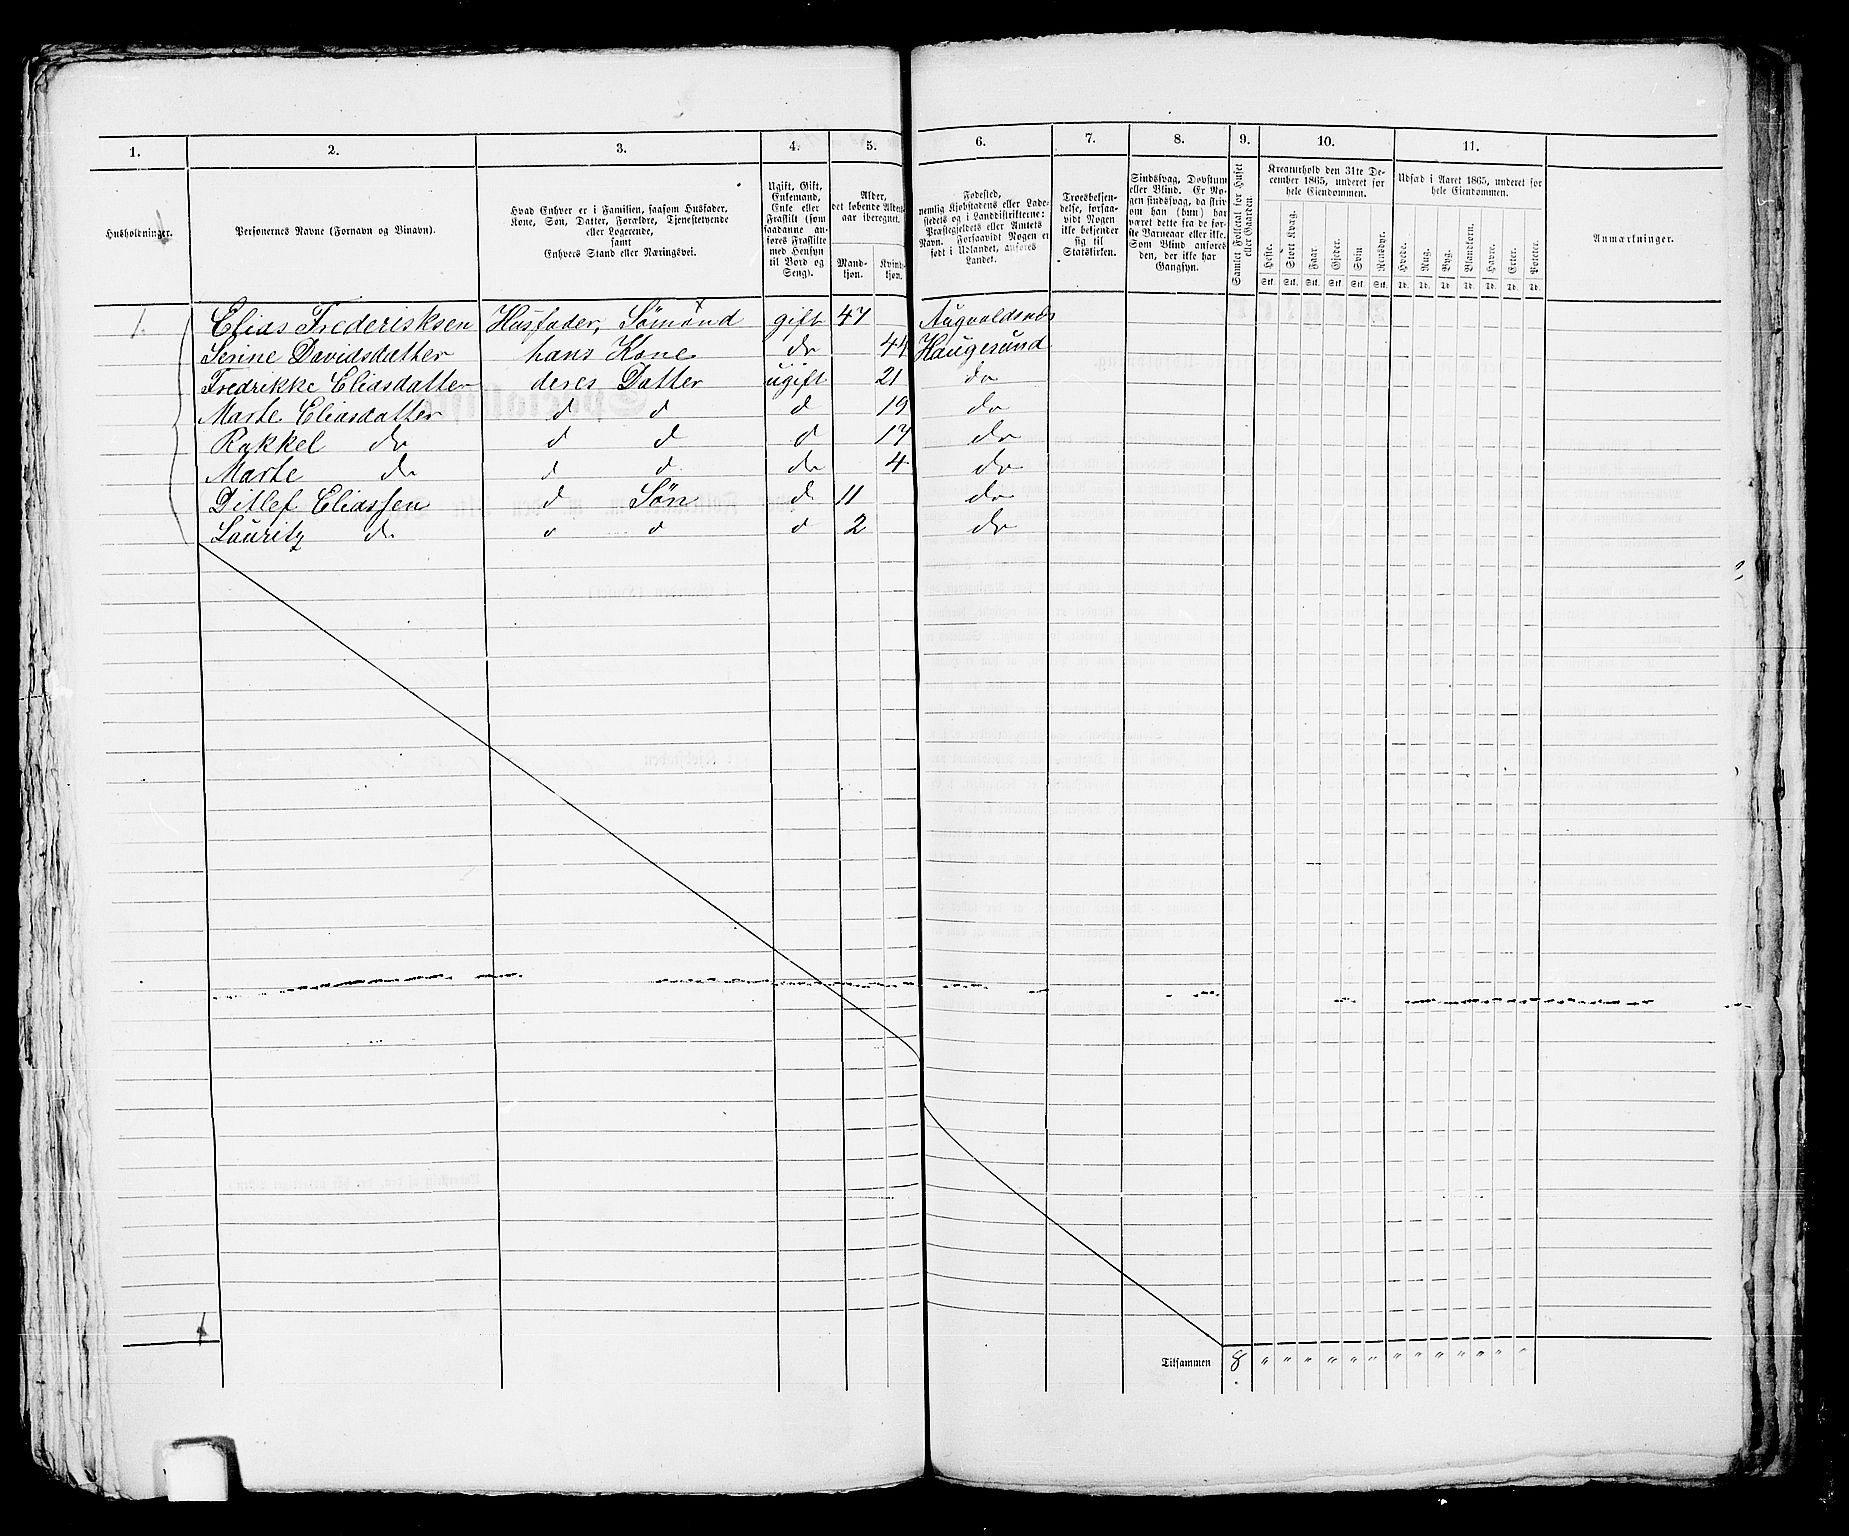 1. 2. 3. 4. 5. 6. 7. 8. 9. 10. 11.
Husholdninger.
Personernes Navne (Fornavn og Tilnavn).
Hvad Enhver er i Familien, saasom Husfader,
Kone, Søn, Datter, Forældre, Tjenestetyende
eller Logerende,
samt
Enhvers Stand eller Næringsvei.
Ugift, Gift,
Enkemand,
Enke eller
Fraskilt (som
saadanne an-
føres Fraskilte
med Hensyn
til Bord og
Seng).
Alder,
det løbende Alders-
aar iberegnet.
Mand-
kjøn.
Kvind-
kjøn.
Fødested,
nemlig Kjøbstadens eller Lade-
stedets og i Landdistrikterne:
Præstegjeldets eller Amtets
Navn. Forsaavidt Nogen er
født i Udlandet, anføres
Landet.
Troesbekjen-
delse, forsaa-
vidt Nogen
ikke bekjender
sig til
Statskirken.
Sindssvag, Døvstum
eller Blind. Er No-
gen sindssvag, da skriv
om han (hun) har
været dette fra de før-
ste Barneaar eller ikke.
Som Blind anføres
den, der ikke har
Gangsyn.
Samlet Folketal for Huset
eller Gaarden.
Kreaturhold den 31te De-
cember 1865, underet for
hele Eiendommen.
Heste. Stort Kvæg. Faar. Gjeder. Svin. Rensdyr.
Stk. Stk. Stk. Stk. Stk. Stk.
Udsæd i Aaret 1865, underet for
hele Eiendommen.
Hvede. Rug. Byg. Blandkorn. Havre. Erter. Poteter.
Td. Td. Td. Td. Td. Td. Td.
Anmærkninger.
1. Elias Frederiksen Husfader, Sømand gift 47 Augvaldsnes
Serine Davidsdatter hans Kone do 44 Haugesund
Fredrikke Eliasdatter deres Datter ugift 21 do
Marte Eliasdatter d d d 19 do
Rakkel do d d d 17 do
Marte do d d do 4 do
Ditlef Eliassen d Søn d 11 do
Lauritz do d d d 2 do
1
Tilsammen 8 " " " " " " " " " " " " "